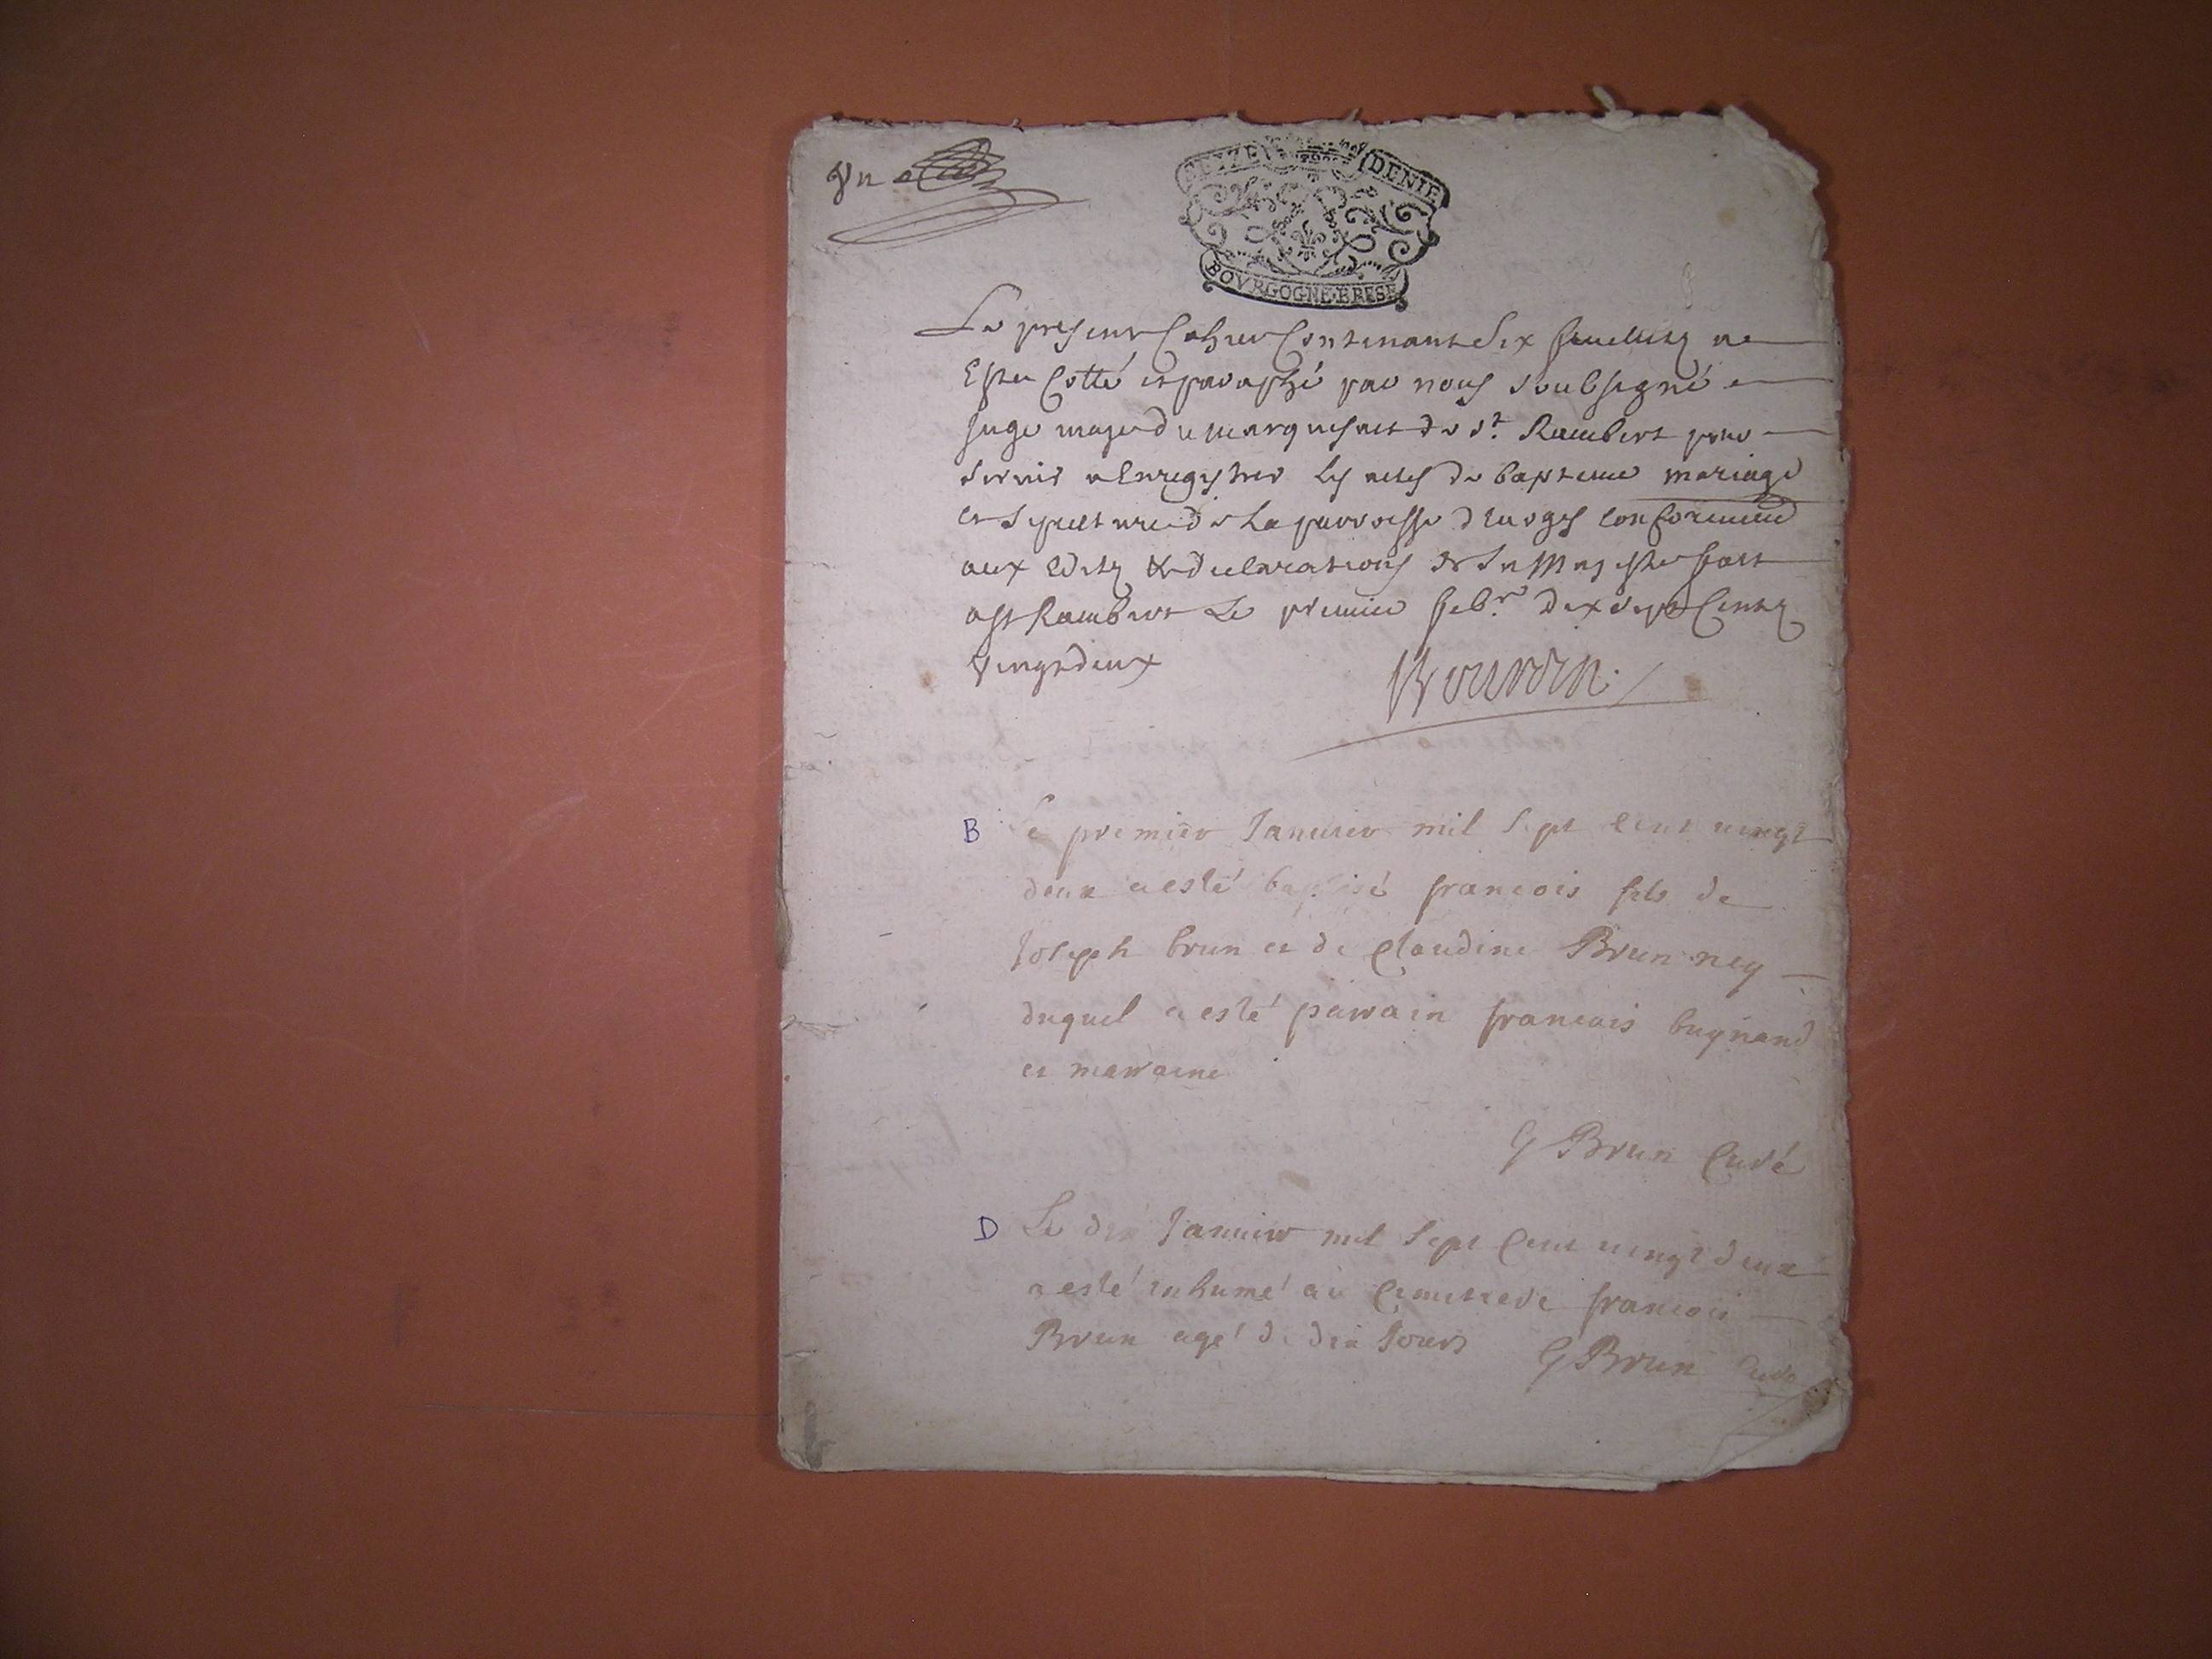 Un
DENIE
BOVRGOGNE·BRESE
Le present Cahier Contenant Six feuilletz a
Esté Cotté et paraphé par nous soubsigné
Juge maje du marquisat de St. Rambert pour
servir a Enregistrer les actes de bapteme mariage
et sepulture de La parroisse conformem
aux Editz & declarations de Sa Majesté fait
a St Rambert Le premier dix sept Centz
vingt deux
B Le premier Janvier mil sept cent vingt
deux a esté baptisé francois fils de
Joseph brun et de Claudine Brun
duquel a esté parrain francois bugnand
et marraine
G Brun Curé
D Le dix Janvier mil sept Cent vingt deux
a esté inhumé au Cimetiere francois
Brun agé de dix Jours G Brun Curé